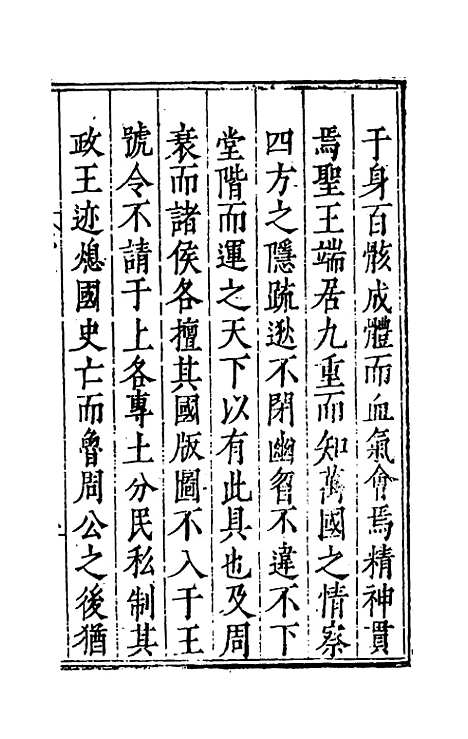 于身百骸成體而血氣會焉精神貫
焉聖王端居九重而知萬國之情察
四方之隱疏逖不閉幽窅不違不下
堂階而運之天下以有此具也及周
衰而諸侯各擅其國版圖不入于王
號令不請于上各專土分民私制其
政王迹熄國史亡而魯周公之後猶